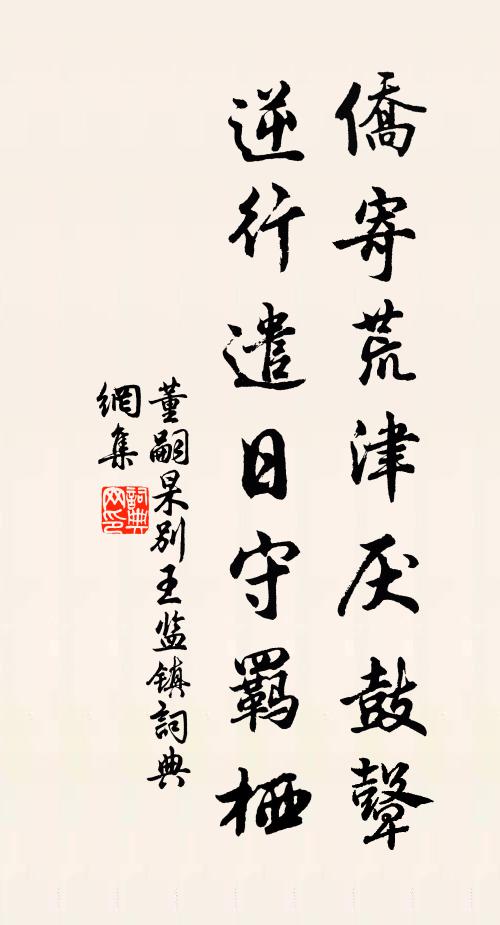 僑寄荒津厌鼓鼙
逆行遣日守羈栖
董嗣杲别王监鎮詞典
網集
詞典网印